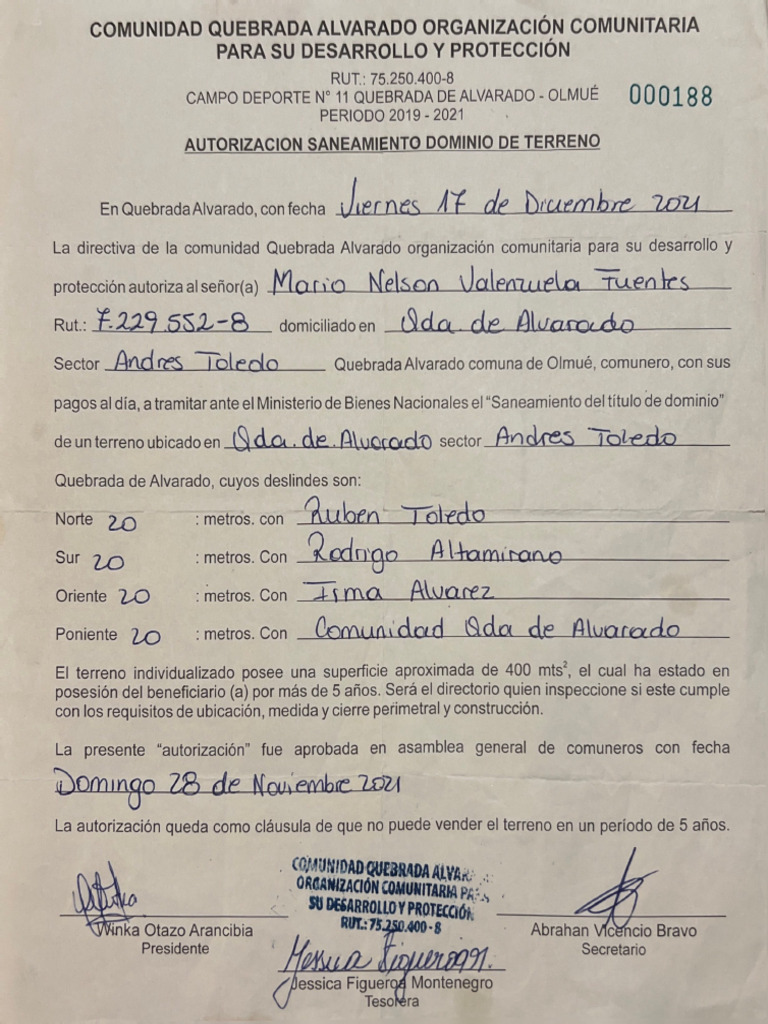 COMUNIDAD QUEBRADA ALVARADO ORGANIZACIÓN COMUNITARIA
PARA SU DESARROLLO Y PROTECCIÓN
RUT.: 75.250.400-8
CAMPO DEPORTE N° 11 QUEBRADA DE ALVARADO - OLMUÉ
000188
PERIODO 2019 - 2021
AUTORIZACION SANEAMIENTO DOMINIO DE TERRENO
En Quebrada Alvarado, con fecha Viernes 17 de Diciembre 2021
La directiva de la comunidad Quebrada Alvarado organización comunitaria para su desarrollo y
protección autoriza al señor(a) Mario Nelson Valenzuela Fuentes
Rut.: 7.229.552-8 domiciliado en Qda. de Alvarado
Sector Andres Toledo Quebrada Alvarado comuna de Olmué, comunero, con sus
pagos al día, a tramitar ante el Ministerio de Bienes Nacionales el “Saneamiento del título de dominio”
de un terreno ubicado en Qda. de Alvarado sector Andres Toledo
Quebrada de Alvarado, cuyos deslindes son:
Norte 20 : metros. con Ruben Toledo
Sur 20 : metros. Con Rodrigo Altamirano
Oriente 20 : metros. Con Irma Alvarez
Poniente 20 : metros. Con Comunidad Qda de Alvarado
El terreno individualizado posee una superficie aproximada de 400 mts², el cual ha estado en
posesión del beneficiario (a) por más de 5 años. Será el directorio quien inspeccione si este cumple
con los requisitos de ubicación, medida y cierre perimetral y construcción.
La presente “autorización” fue aprobada en asamblea general de comuneros con fecha
Domingo 28 de Noviembre 2021
La autorización queda como cláusula de que no puede vender el terreno en un período de 5 años.
COMUNIDAD QUEBRADA ALVAR
ORGANIZACIÓN COMUNITARIA PA
SU DESARROLLO Y PROTECCIÓN
RUT.: 75.250.400-8
Winka Otazo Arancibia
Presidente
Abrahan Vicencio Bravo
Secretario
Jessica Figueroa M.
Jessica Figueroa Montenegro
Tesorera